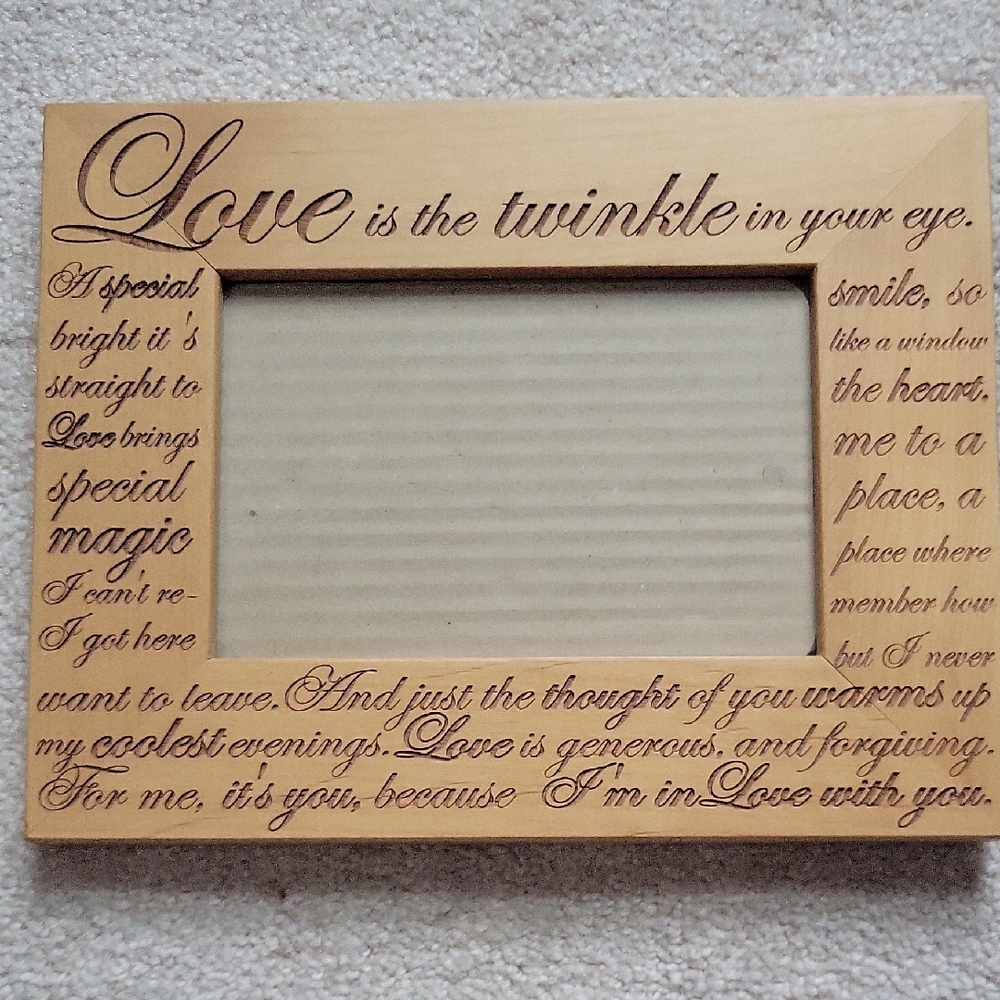 Love is the twinkle in your eye.
A special smile, so
bright it's like a window
straight to the heart.
Love brings me to a
special place, a
magic place where
I can't re- member how
I got here but I never
want to leave. And just the thought of you warms up
my coolest evenings. Love is generous, and forgiving.
For me, it's you, because I'm in Love with you.